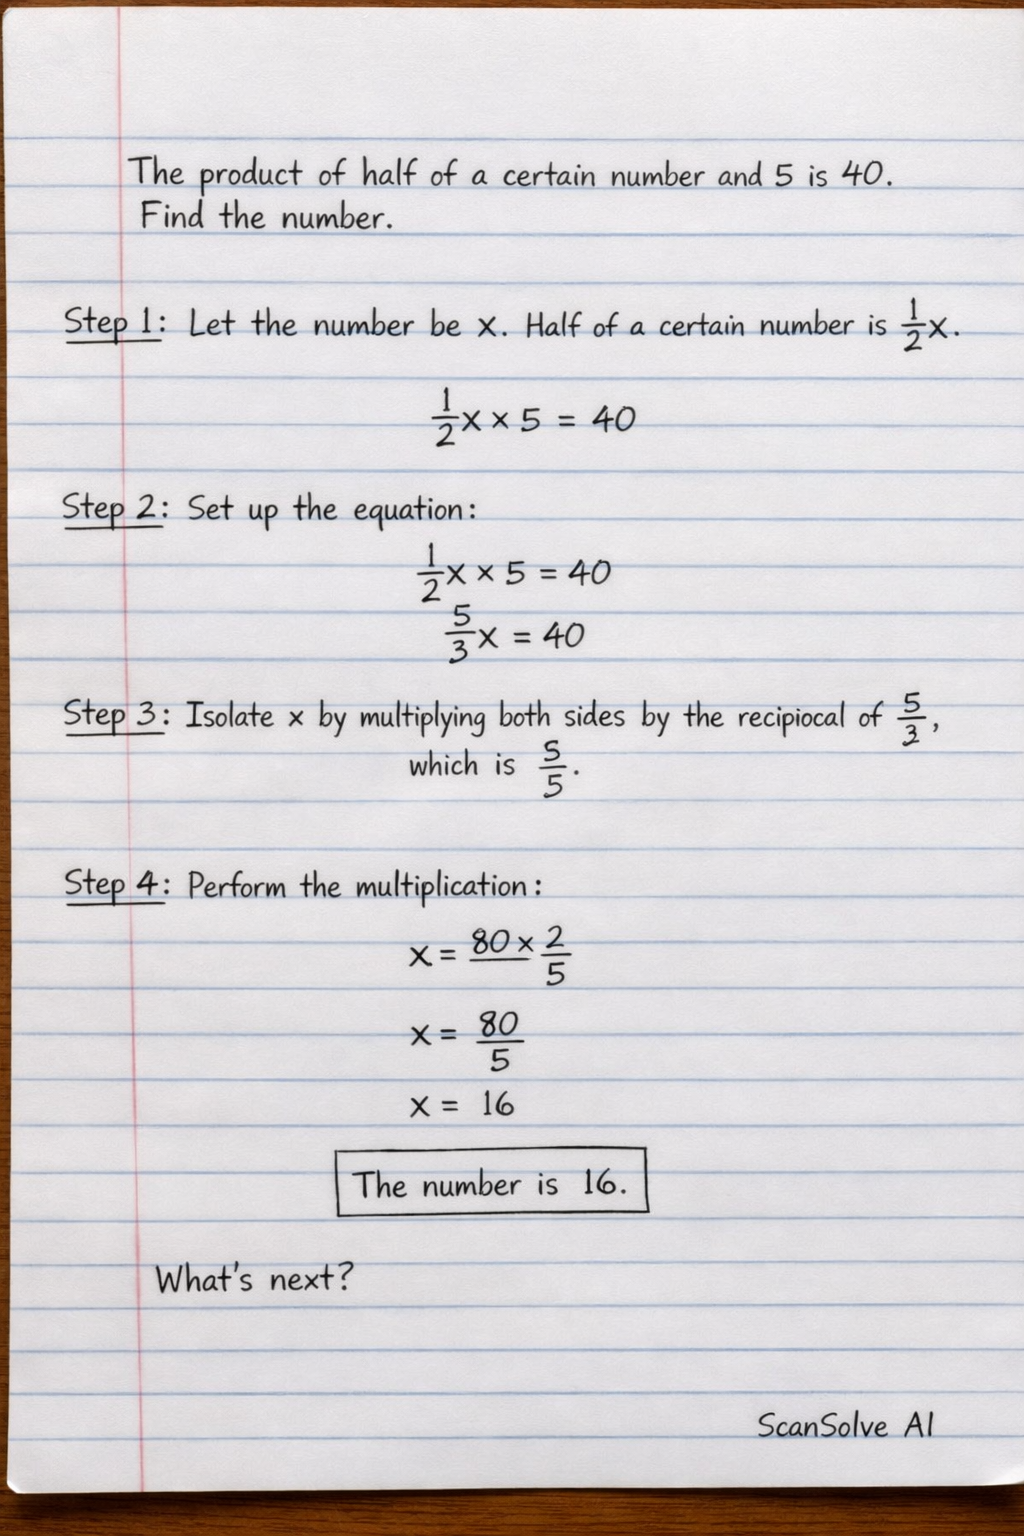 The product of half of a certain number and 5 is 40.
Find the number.
Step 1: Let the number be x. Half of a certain number is 1/2 x.
1/2 x × 5 = 40
Step 2: Set up the equation:
1/2 x × 5 = 40
5/3 x = 40
Step 3: Isolate x by multiplying both sides by the recipiocal of 5/3,
which is 5/5.
Step 4: Perform the multiplication:
x = 80 × 2/5
x = 80/5
x = 16
The number is 16.
What's next?
ScanSolve AI